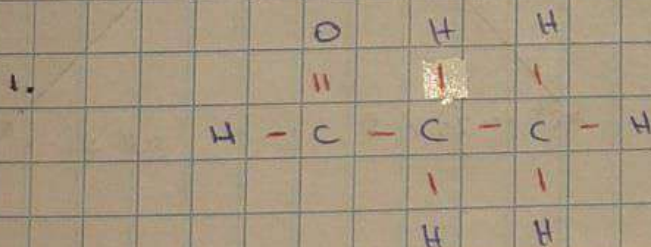 O H H
1. || | |
H - C - C - C - H
| |
H H